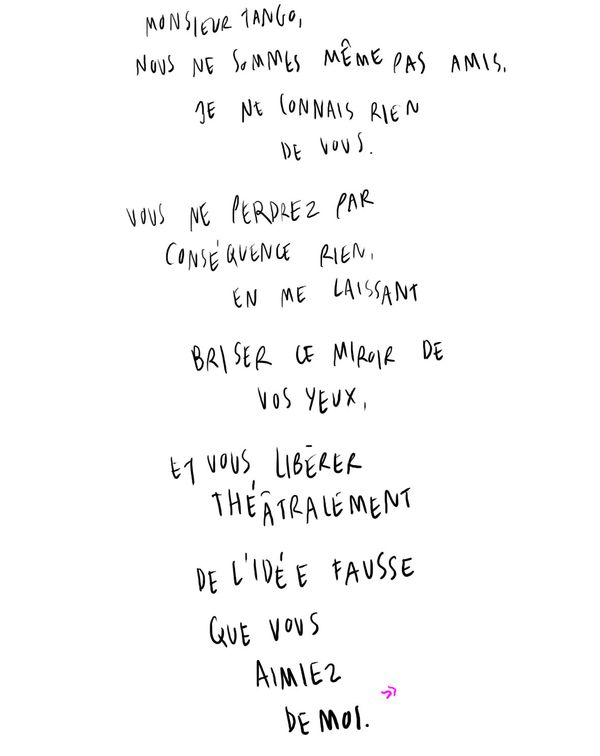 MONSIEUR TANGO,
NOUS NE SOMMES MÊME PAS AMIS.
JE NE CONNAIS RIEN
DE VOUS.
VOUS NE PERDREZ PAR
CONSÉQUENCE RIEN,
EN ME LAISSANT
BRISER CE MIROIR DE
VOS YEUX,
ET VOUS LIBÉRER
THÉÂTRALEMENT
DE L'IDÉE FAUSSE
QUE VOUS
AIMIEZ
DE MOI.